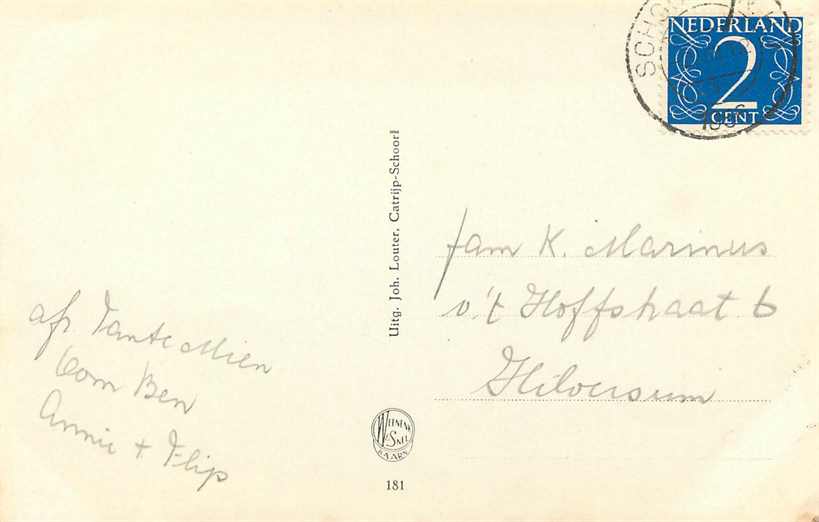 NEDERLAND
2
CENT
afz. Tante Mien
Oom Ben
Annie + Flip
Uitg. Joh. Louter, Catrijp-Schoorl
WEENENK
& SNEL
BAARN
181
fam K. Marinus
v.'t Hoffstraat 6
Hilversum